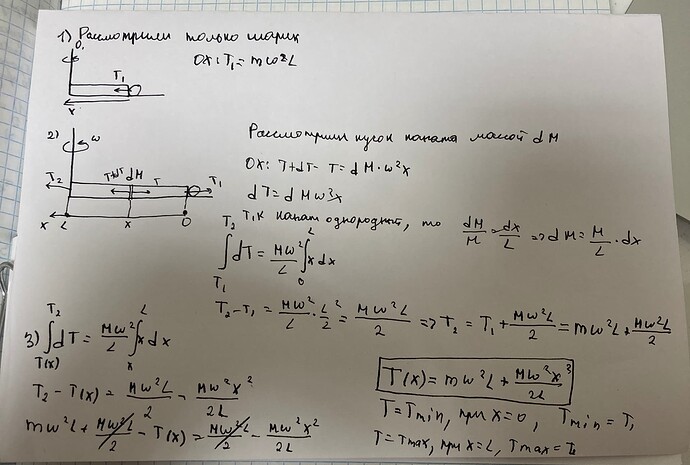 1) Рассмотрим только шарик
OX: T₁ = mω²L
O₁
T₁
x
2)
ω
T₂ T+dT dM T T₁
x L x O
Рассмотрим кусок каната массой dM
OX: T+dT - T = dM · ω²x
dT = dM ω²x
T.к канат однородный, то dM/M = dx/L => dM = M/L · dx
∫_{T₁}^{T₂} dT = Mω²/L ∫_{0}^{L} x dx
T₂ - T₁ = Mω²/L · L²/2 = Mω²L/2 => T₂ = T₁ + Mω²L/2 = mω²L + Mω²L/2
3) ∫_{T(x)}^{T₂} dT = Mω²/L ∫_{x}^{L} x dx
T₂ - T(x) = Mω²L/2 - Mω²x²/2L
mω²L + Mω²L/2 - T(x) = Mω²L/2 - Mω²x²/2L
T(x) = mω²L + Mω²x²/2L
T = Tmin, при x = 0, Tmin = T₁
T = Tmax, при x = L, Tmax = T₂